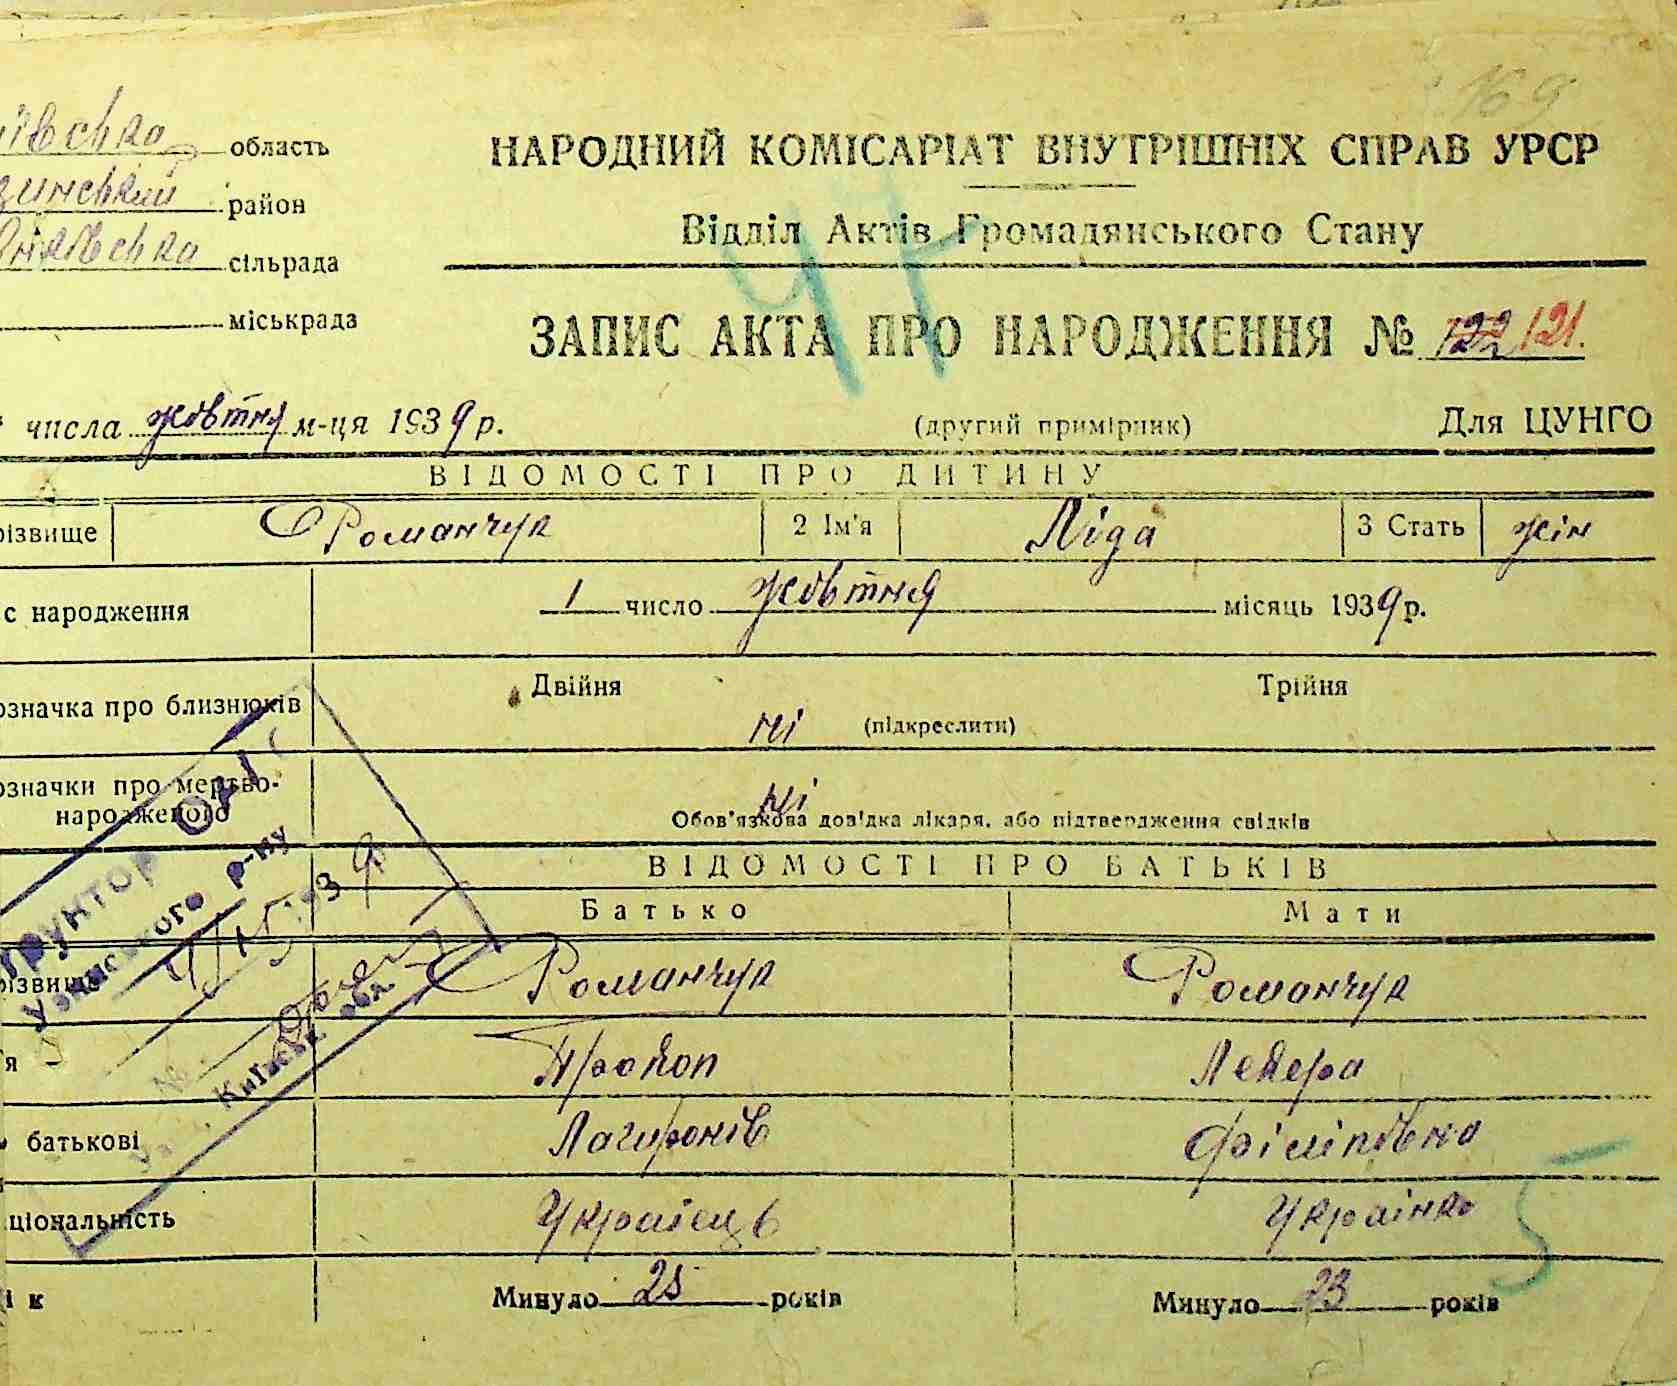 169
ївська область
зинський район
нявська сільрада
міськрада
НАРОДНИЙ КОМІСАРІАТ ВНУТРІШНІХ СПРАВ УРСР
Відділ Актів Громадянського Стану
47
ЗАПИС АКТА ПРО НАРОДЖЕННЯ № 122 121.
числа жовтня м-ця 1939 р.
(другий примірник)
Для ЦУНГО
ВІДОМОСТІ ПРО ДИТИНУ
різвище Романчук 2 Ім'я Ліда 3 Стать жін
с народження 1 число жовтня місяць 1939 р.
означка про близнюків Двійня Трійня
ні (підкреслити)
означки про мертво-
народженого ні
Обов'язкова довідка лікаря, або підтвердження свідків
ВІДОМОСТІ ПРО БАТЬКІВ
Батько Мати
різвище Романчук Романчук
я Прокоп Лекера
батькові Лагиронів Філіпівна
аціональність Українець Українка
ік Минуло 25 років Минуло 23 років
5
труктор ОАГС
Узинського р-ну
1939
№
Київськ обл